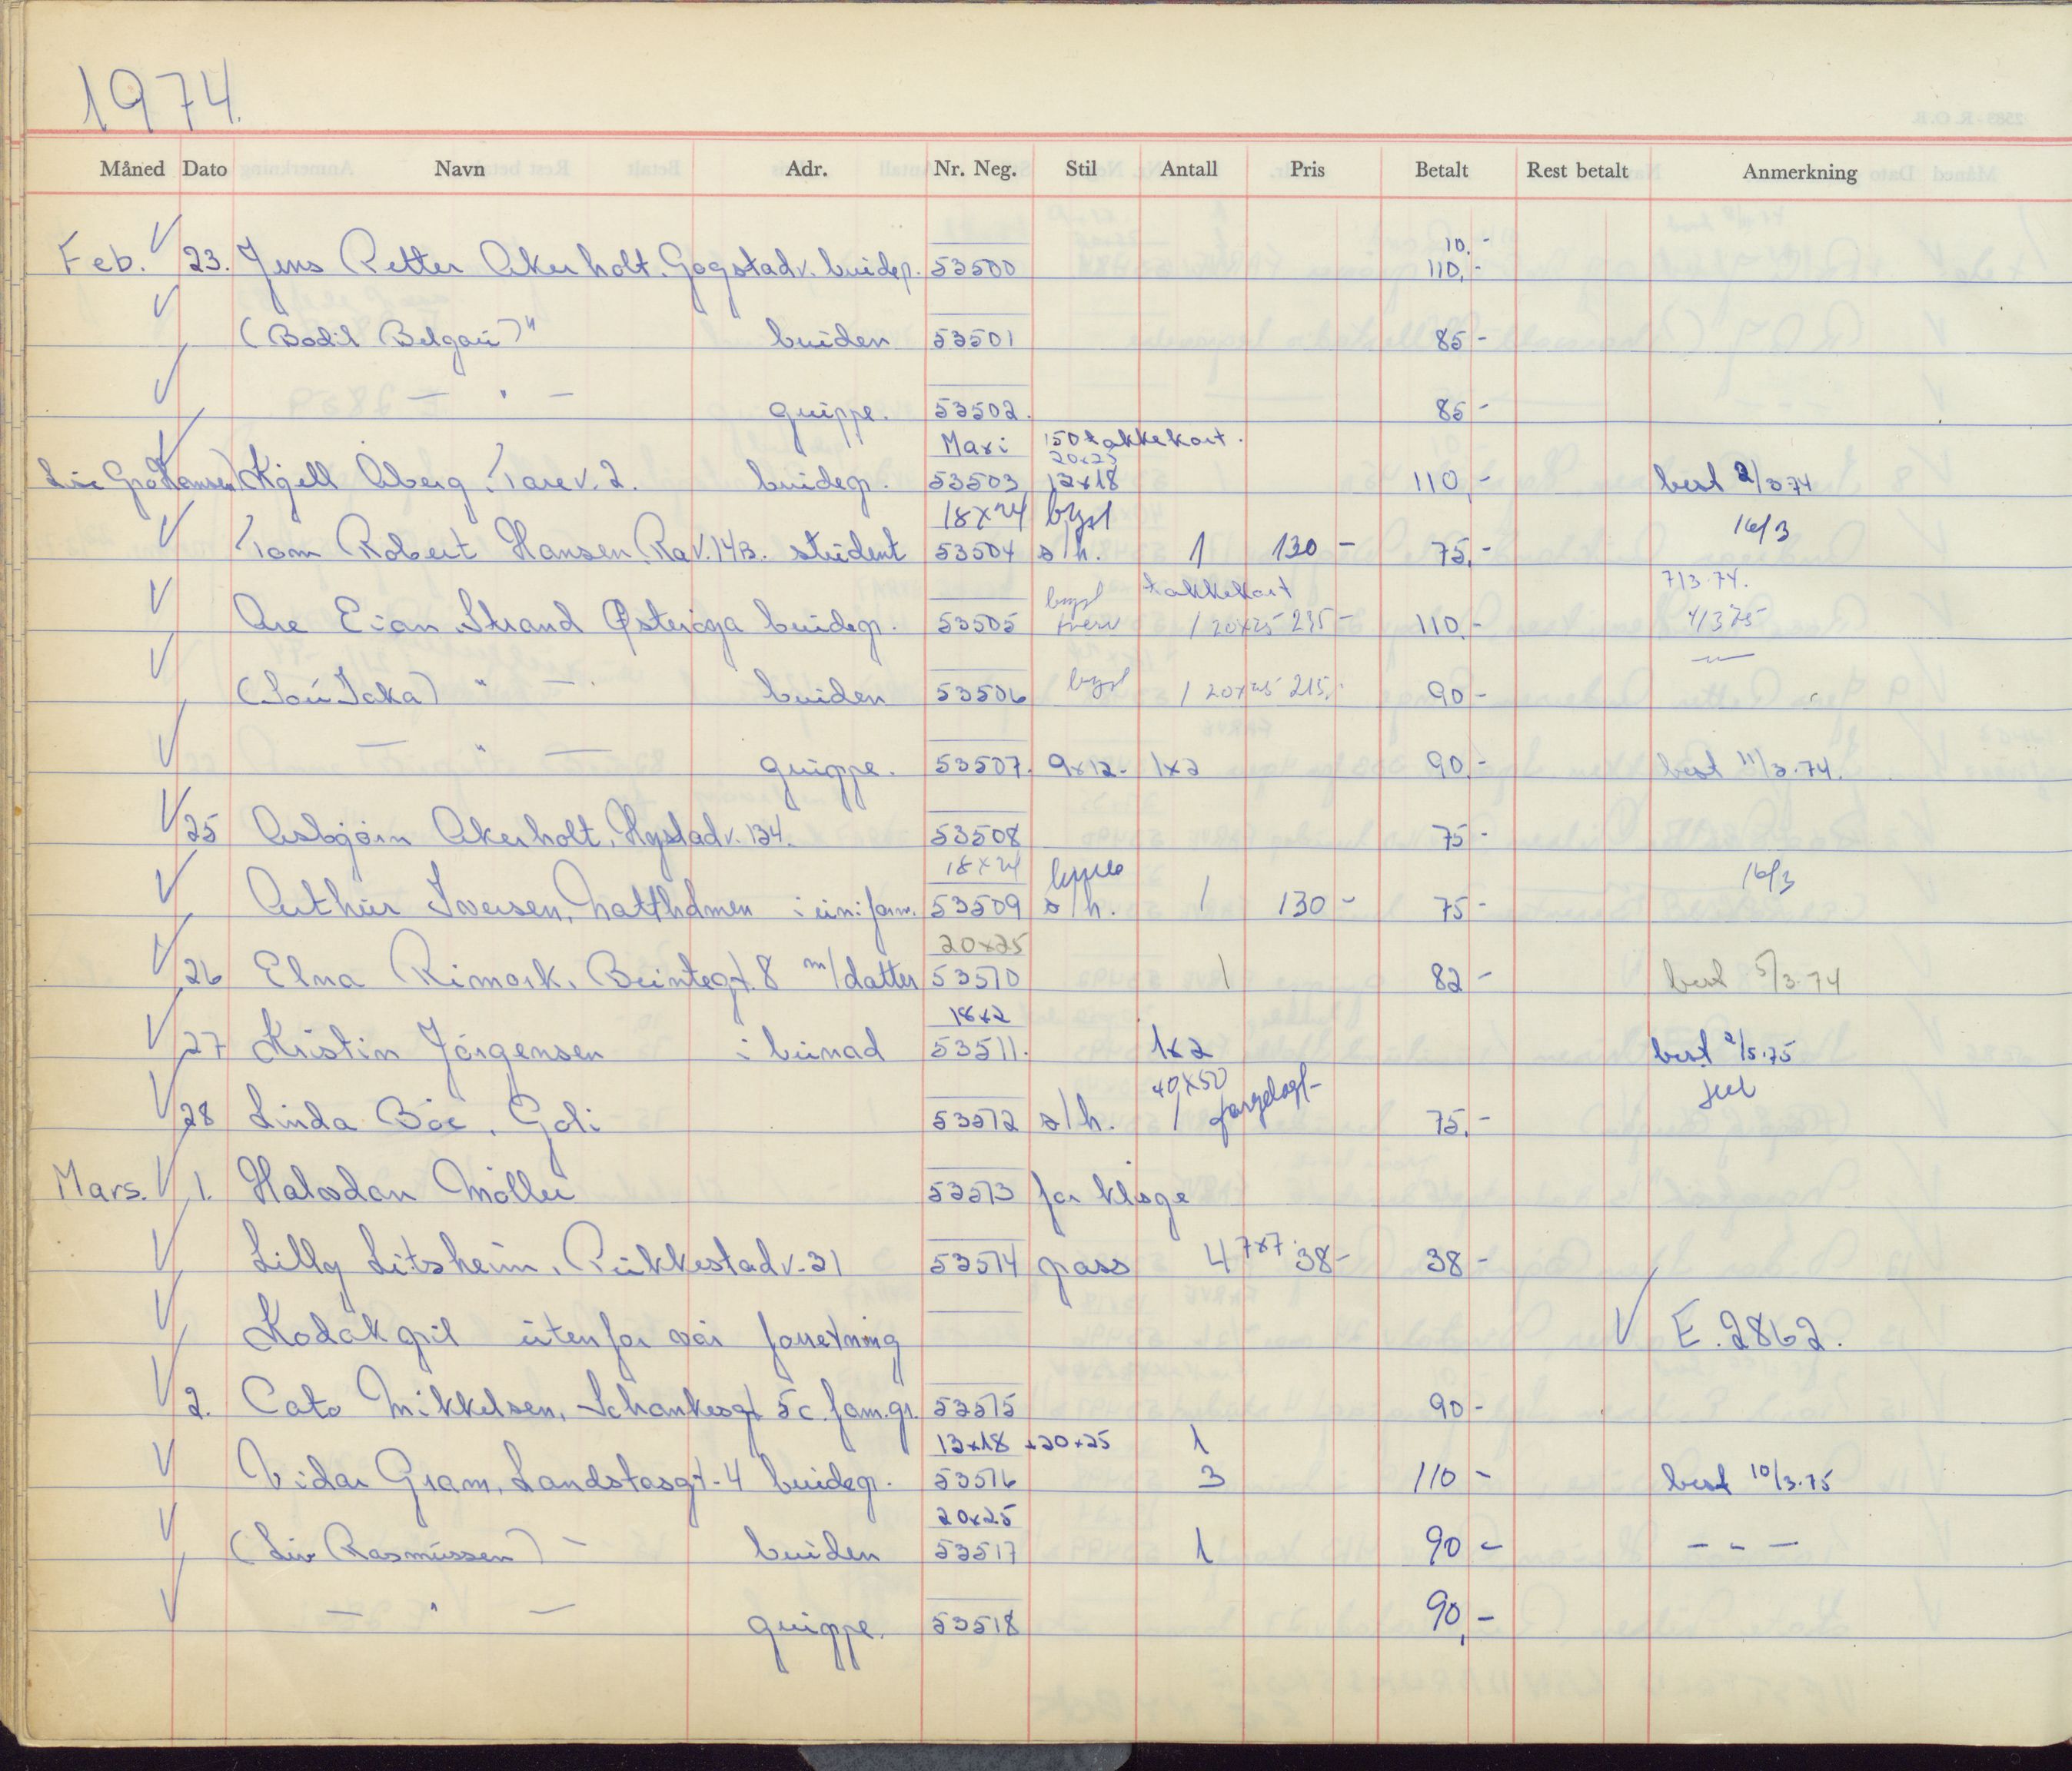 1974.
Måned Dato Navn Adr. Nr. Neg. Stil Antall Pris Betalt Rest betalt Anmerkning
10.-
Feb. 23. Jens Petter Akerholt. Gogstadv. brudep. 53500 110,-
(Bodil Belgau) " bruden 53501 85-
— " — gruppe. 53502. 85-
Maxi 150 takkekort.
20x25
Kjell Åberg, Torev. 2. brudep. 53503 13x18 110,- best 2/3 74
18x24 bryst 16/3
Tom Robert Hansen, Rav. 14B. student 53504 s/h. 1 130- 75,-
bryst takkekort 7/3.74.
Are Eian, Strand Østerøya brudep. 53505 tverr 1 20x25 235- 110,- 4/3 75
" — bruden 53506 bryst 1 20x25 215,- 90-
— " — gruppe. 53507. 9x12. 1x2 90,- best 11/3.74.
25 Asbjørn Akerholt, Hystadv. 134. 53508 75-
18x24 16/3
Arthur Iversen, Nattholmen i uniform. 53509 s/h. 1 130- 75-
20x25
26 Elna Rimork, Bruntegt. 8 m/datter 53510 1 82- best 5/3.74
18x2
27 Kristin Jørgensen i bunad 53511. 1x2 best 2/5.75
40x50
28 Linda Bøe, Goli 53512 s/h. 1 75,-
Mars. 1. Halvdan Møller 53513 for kloge
Lilly Litsheim, Pukkestadv. 31 53514 pass 4 7x7 38- 38-
Kodak gril utenfor vår forretning E. 2862.
2. Cato Mikkelsen, Schankesgt 5c. fam.gr. 53515 90-
13x18 +20x25 1
Vidar Gram, Landstasgt. 4 brudep. 53516 3 110- best 10/3.75
20x25
(Liv Rasmussen) - bruden 53517 1 90- - - -
— " — gruppe. 53518 90,-